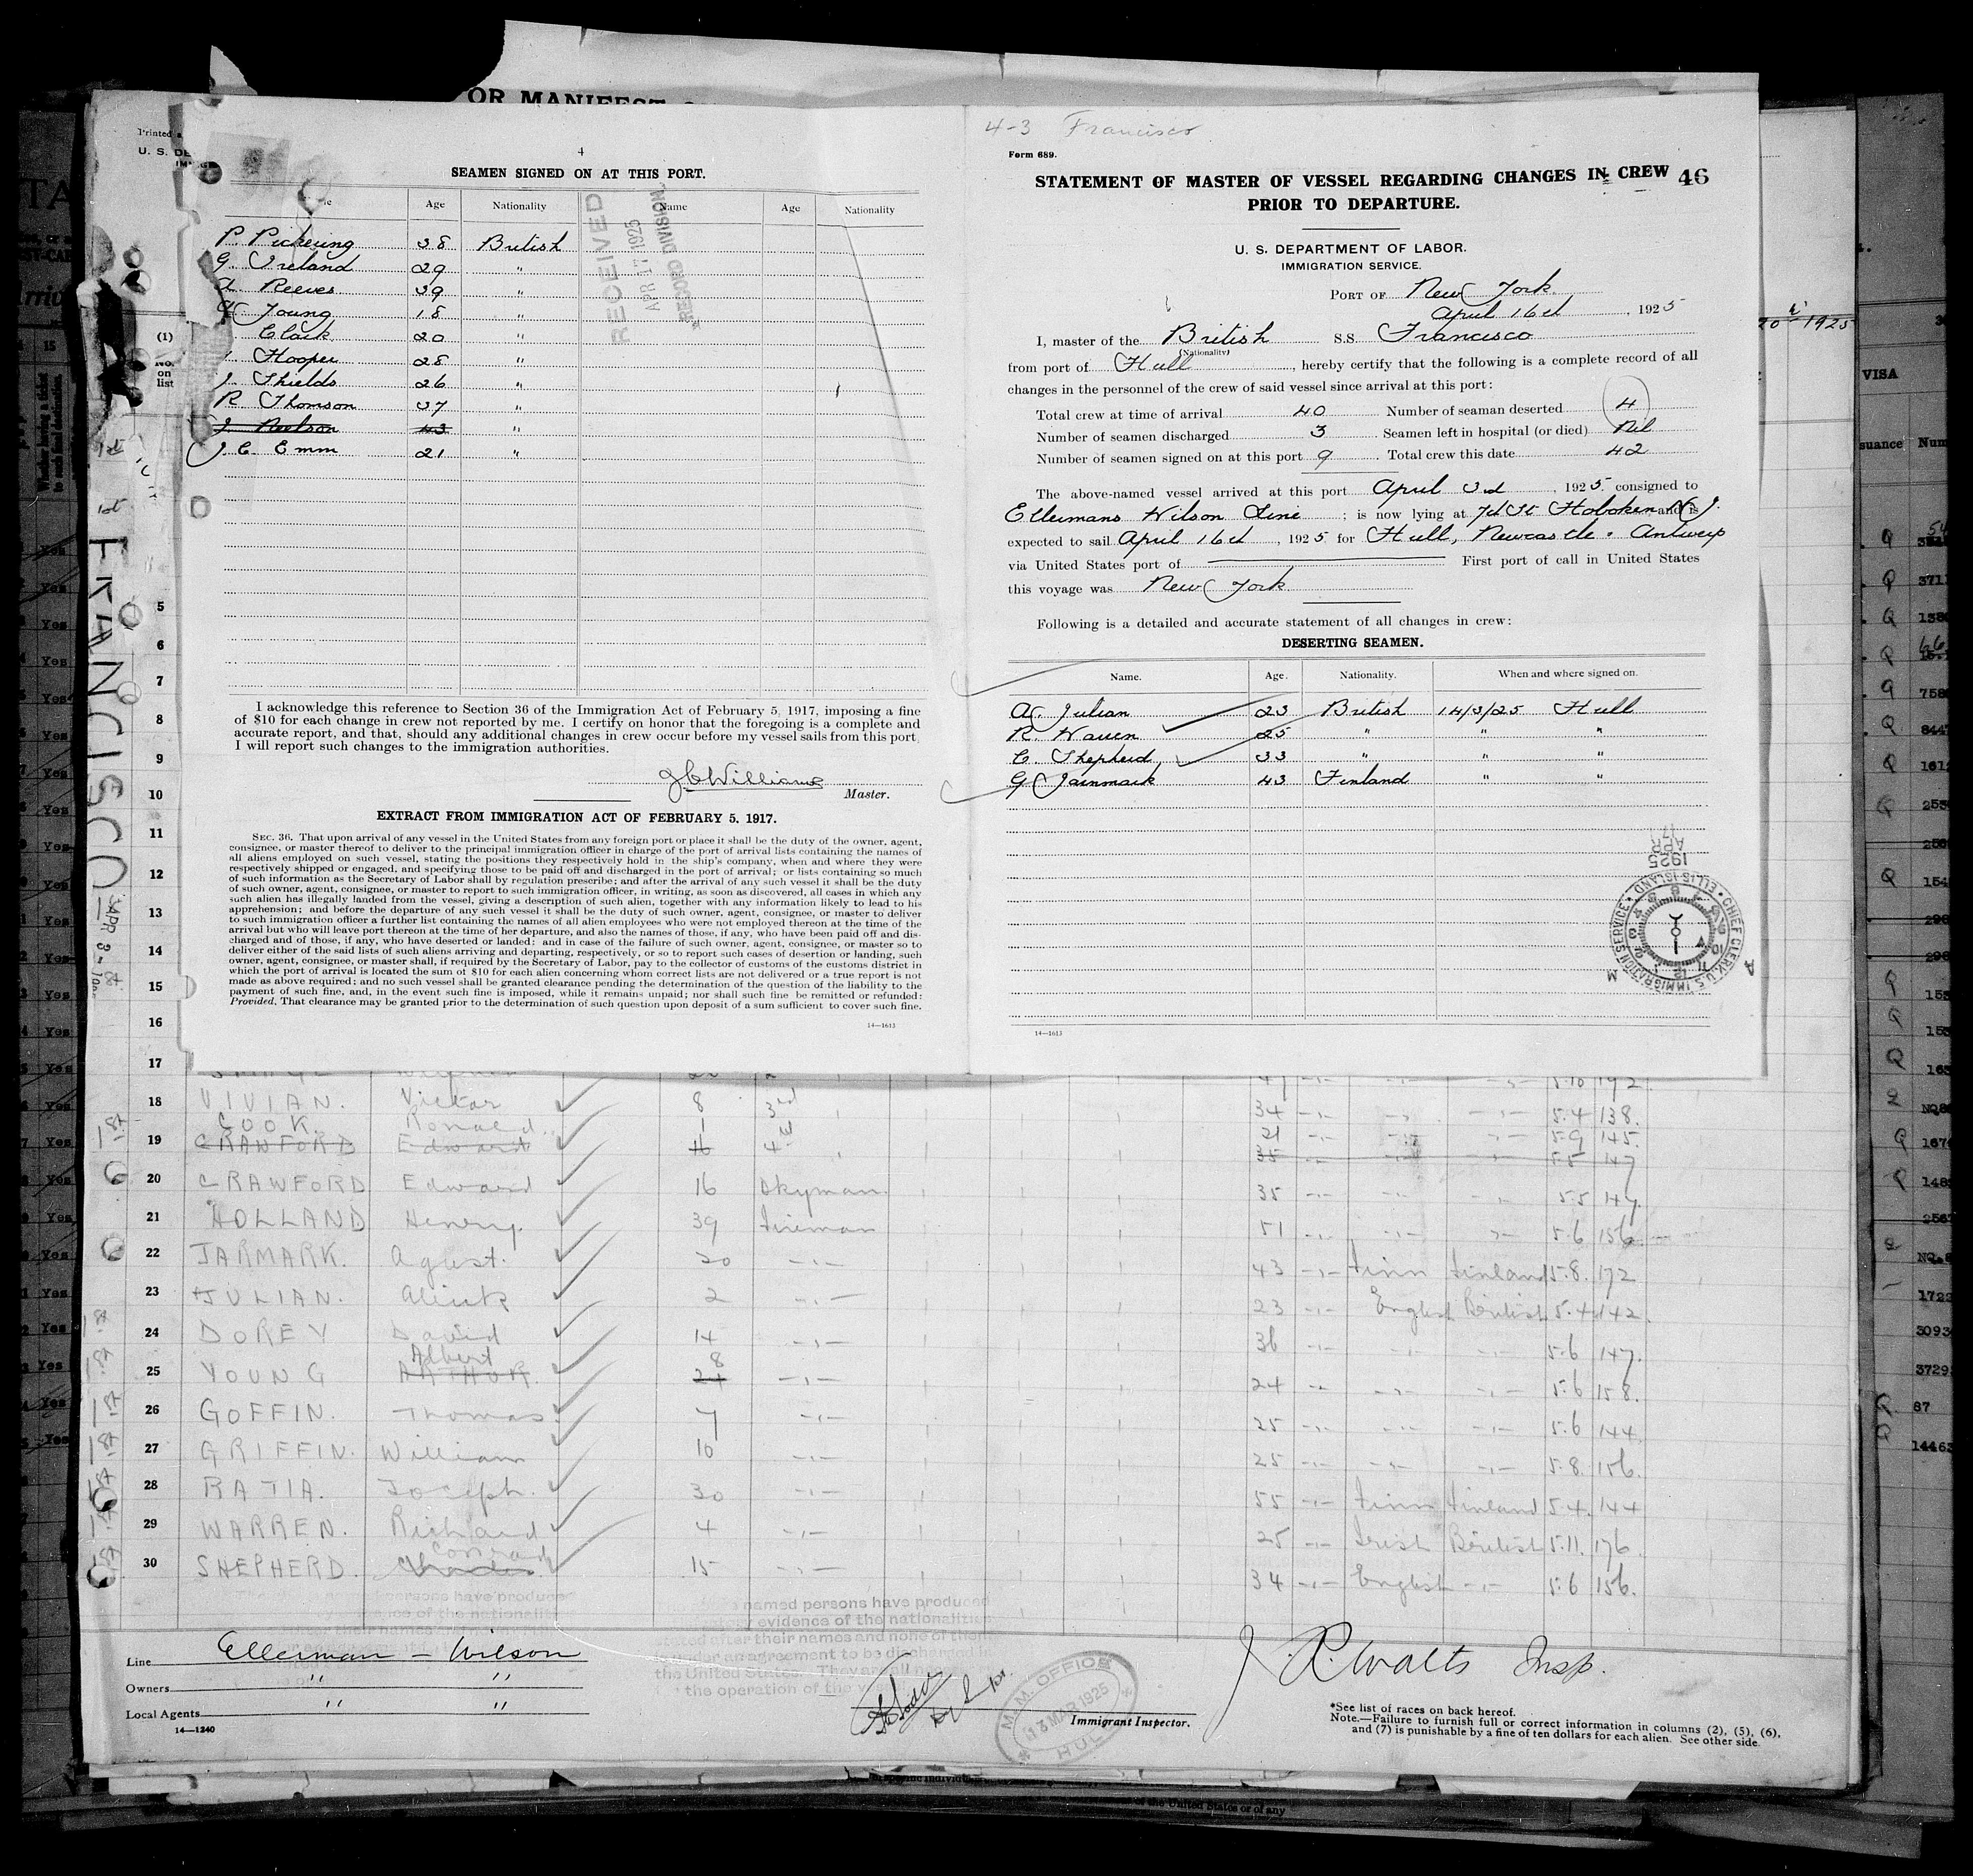 OR MANIFEST
Printed
U. S. DE
4
SEAMEN SIGNED ON AT THIS PORT.
Age Nationality Name Age Nationality
P. Pickering 38 British
G. Ireland 29 "
A. Reeves 39 "
Young 18 "
Clark 20 "
Hooper 28 "
J. Shields 26 "
R. Thomson 37 "
J. Neelson 43 "
J. C. Emm 21 "
RECEIVED
APR 17 1925
RECORD DIVISION
I acknowledge this reference to Section 36 of the Immigration Act of February 5, 1917, imposing a fine
of $10 for each change in crew not reported by me. I certify on honor that the foregoing is a complete and
accurate report, and that, should any additional changes in crew occur before my vessel sails from this port
I will report such changes to the immigration authorities.
J C Williams
Master.
EXTRACT FROM IMMIGRATION ACT OF FEBRUARY 5, 1917.
SEC. 36. That upon arrival of any vessel in the United States from any foreign port or place it shall be the duty of the owner, agent,
consignee, or master thereof to deliver to the principal immigration officer in charge of the port of arrival lists containing the names of
all aliens employed on such vessel, stating the positions they respectively hold in the ship's company, when and where they were
respectively shipped or engaged, and specifying those to be paid off and discharged in the port of arrival; or lists containing so much
of such information as the Secretary of Labor shall by regulation prescribe; and after the arrival of any such vessel it shall be the duty
of such owner, agent, consignee, or master to report to such immigration officer, in writing, as soon as discovered, all cases in which any
such alien has illegally landed from the vessel, giving a description of such alien, together with any information likely to lead to his
apprehension; and before the departure of any such vessel it shall be the duty of such owner, agent, consignee, or master to deliver
to such immigration officer a further list containing the names of all alien employees who were not employed thereon at the time of the
arrival but who will leave port thereon at the time of her departure, and also the names of those, if any, who have been paid off and dis-
charged and of those, if any, who have deserted or landed; and in case of the failure of such owner, agent, consignee, or master so to
deliver either of the said lists of such aliens arriving and departing, respectively, or so to report such cases of desertion or landing, such
owner, agent, consignee, or master shall, if required by the Secretary of Labor, pay to the collector of customs of the customs district in
which the port of arrival is located the sum of $10 for each alien concerning whom correct lists are not delivered or a true report is not
made as above required; and no such vessel shall be granted clearance pending the determination of the question of the liability to the
payment of such fine, and, in the event such fine is imposed, while it remains unpaid; nor shall such fine be remitted or refunded:
Provided, That clearance may be granted prior to the determination of such question upon deposit of a sum sufficient to cover such fine.
14—1613
4-3 Francisco
Form 689.
STATEMENT OF MASTER OF VESSEL REGARDING CHANGES IN CREW 46
PRIOR TO DEPARTURE.
U. S. DEPARTMENT OF LABOR.
IMMIGRATION SERVICE.
PORT OF New York
April 16th, 1925
I, master of the British S.S. Francisco
(Nationality)
from port of Hull, hereby certify that the following is a complete record of all
changes in the personnel of the crew of said vessel since arrival at this port:
Total crew at time of arrival 40 Number of seaman deserted 4
Number of seamen discharged 3 Seamen left in hospital (or died) Nil
Number of seamen signed on at this port 9. Total crew this date 42
The above-named vessel arrived at this port April 3rd, 1925 consigned to
Ellermans Wilson Line; is now lying at 7th St Hoboken N.J. and is
expected to sail April 16th, 1925 for Hull, Newcastle. Antwerp
via United States port of First port of call in United States
this voyage was New York
Following is a detailed and accurate statement of all changes in crew:
DESERTING SEAMEN.
Name. Age. Nationality. When and where signed on.
A. Julian 23 British 14/3/25 Hull
R. Warren 25 " " "
C. Shepherd 33 " " "
G. Jarnmark 43 Finland " "
14—1613
CHIEF CLERK, U. S. IMMIGRATION SERVICE ELLIS ISLAND
1925 APR 17
20 1925
VISA
suance Num
(1)
No.
on
list
FRANCISCO
5
6
7
8
9
10
11
12
13
14
15
16
17 5.10 192
18 VIVIAN. Victor 8 3rd 34 5.4 138.
COOK. Ronald 1 21 5.9 145.
19 CRAWFORD Edward 16 4th 35 5.5 147
20 CRAWFORD Edward 16 Dkyman 35 5.5 147.
21 HOLLAND Henry. 39 Fireman 51 5.6 156
22 JARMARK. Agust. 20 43 Finn Finland 5.8. 172
23 JULIAN. Alick 2 23 English British 5.4 142.
24 DOREY David 14 36 5.6 147.
Albert 8
25 YOUNG ARTHUR. 24 24 5.6 158.
26 GOFFIN. Thomas 7 25 5.6 144.
27 GRIFFIN. William 10 25 5.8. 156.
28 RATIA. Joseph. 30 55 Finn Finland 5.4. 144
29 WARREN. Richard 4 25 Irish British 5.11. 176.
Conrad
30 SHEPHERD. Charles 15 34 English 5.6 156.
named persons have produced
evidence of the nationalities
after their names and none of them
under an agreement to be discharged in
the United States. They are all
the operation of the vessel
Line Ellerman - Wilson
Owners " "
Local Agents " "
14—1240
M.M. OFFICE
13 MAR 1925
HULL
Immigrant Inspector.
J. R. Watts Insp.
*See list of races on back hereof.
Note.—Failure to furnish full or correct information in columns (2), (5), (6),
and (7) is punishable by a fine of ten dollars for each alien. See other side.